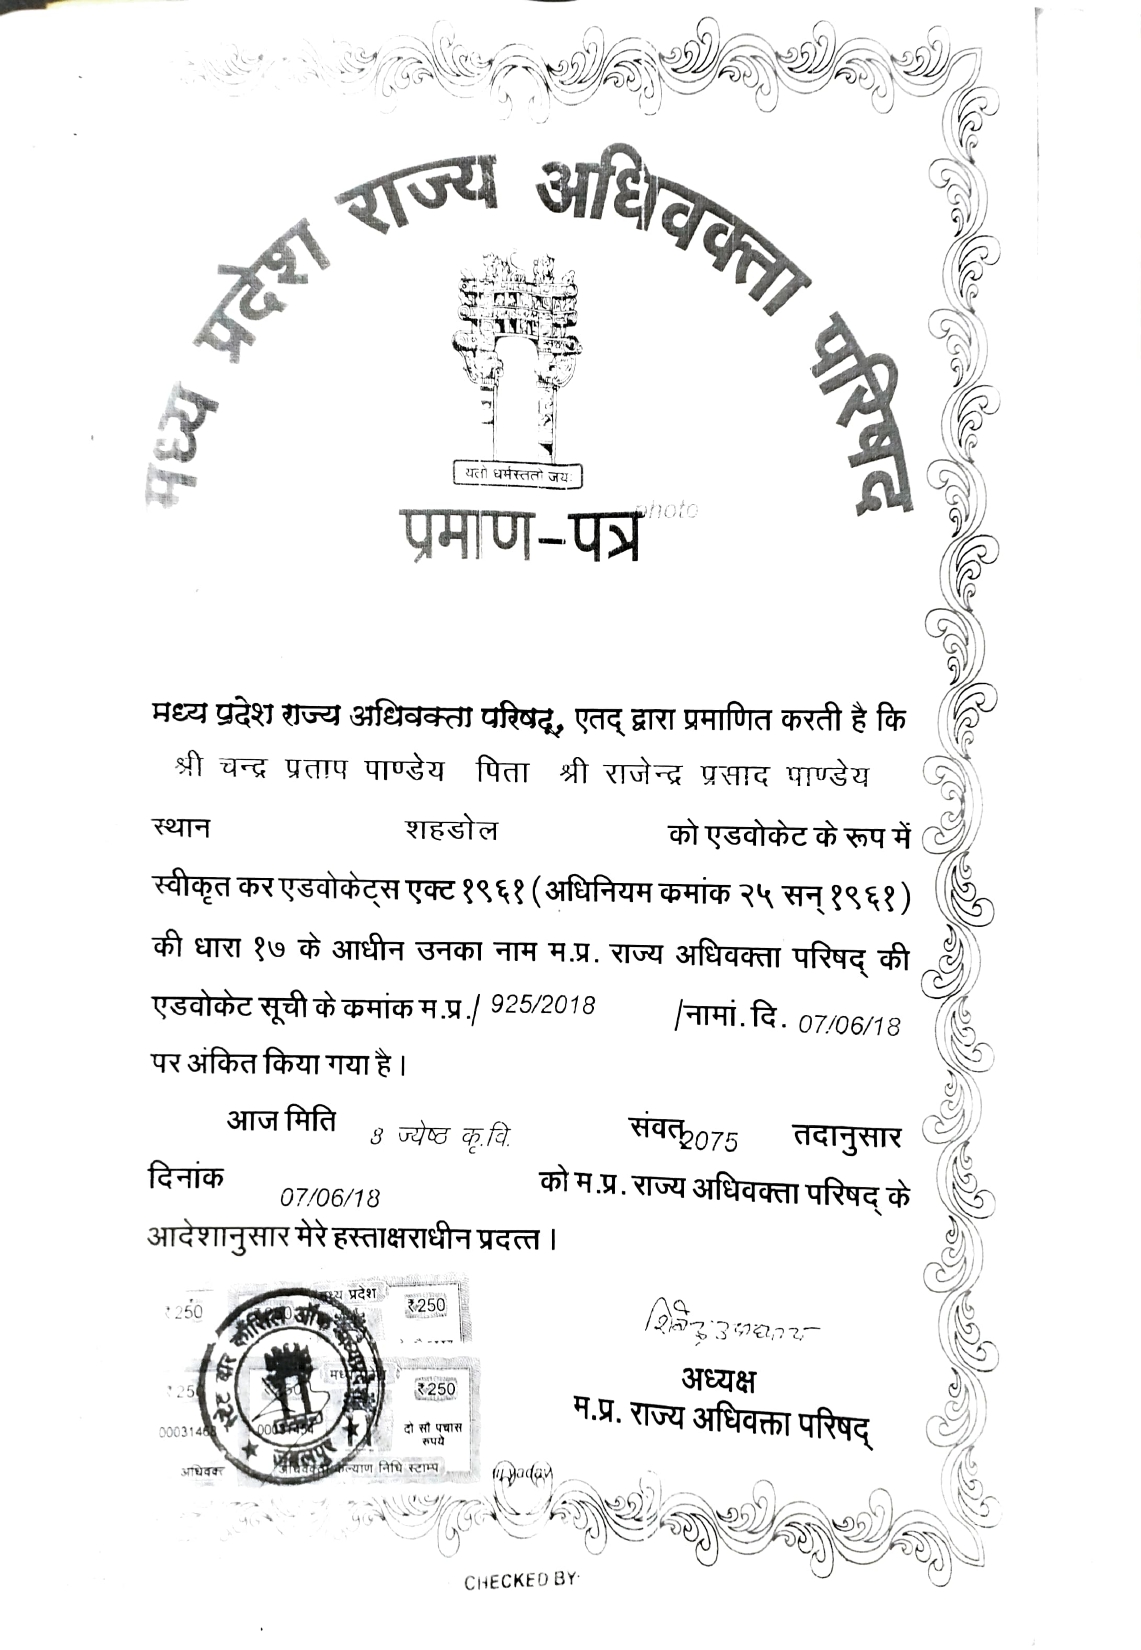 मध्य प्रदेश राज्य अधिवक्ता परिषद
यतो धर्मस्ततो जयः
photo
प्रमाण-पत्र
मध्य प्रदेश राज्य अधिवक्ता परिषद्, एतद् द्वारा प्रमाणित करती है कि
श्री चन्द्र प्रताप पाण्डेय पिता श्री राजेन्द्र प्रसाद पाण्डेय
स्थान शहडोल को एडवोकेट के रूप में
स्वीकृत कर एडवोकेट्स एक्ट १९६१ (अधिनियम कमांक २५ सन् १९६१)
की धारा १७ के आधीन उनका नाम म.प्र. राज्य अधिवक्ता परिषद् की
एडवोकेट सूची के कमांक म.प्र./ 925/2018 /नामां. दि. 07/06/18
पर अंकित किया गया है।
आज मिति 8 ज्येष्ठ कृ.वि. संवत् 2075 तदानुसार
दिनांक 07/06/18 को म.प्र. राज्य अधिवक्ता परिषद् के
आदेशानुसार मेरे हस्ताक्षराधीन प्रदत्त।
250 मध्य प्रदेश ₹250
स्टेट बार कौंसिल ऑफ मध्यप्रदेश
जबलपुर
मध्य प्रदेश ₹250
दो सौ पचास
रुपये
अधिवक्ता कल्याण निधि स्टाम्प
अध्यक्ष
म.प्र. राज्य अधिवक्ता परिषद्
CHECKED BY